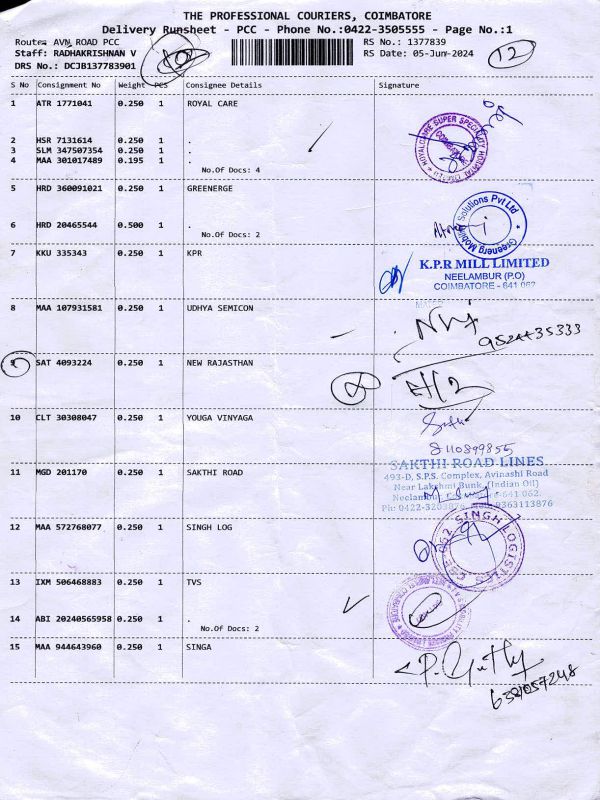 THE PROFESSIONAL COURIERS, COIMBATORE
Delivery Runsheet - PCC - Phone No.:0422-3505555 - Page No.:1
Route: AVN ROAD PCC RS No.: 1377839
Staff: RADHAKRISHNAN V RS Date: 05-Jun-2024 12
DRS No.: DCJB137783901
S No Consignment No Weight PCS Consignee Details Signature
1 ATR 1771041 0.250 1 ROYAL CARE
ROYALCARE SUPER SPECIALITY HOSPITAL
2 HSR 7131614 0.250 1 .
3 SLM 347507354 0.250 1 .
4 MAA 301017489 0.195 1 .
No.Of Docs: 4
5 HRD 360091021 0.250 1 GREENERGE
Greenerg Mobility Solutions Pvt Ltd
6 HRD 20465544 0.500 1 .
No.Of Docs: 2
7 KKU 335343 0.250 1 KPR
K.P.R MILL LIMITED
NEELAMBUR (P.O)
COIMBATORE - 641 062
8 MAA 107931581 0.250 1 UDHYA SEMICON
9524435333
9 SAT 4093224 0.250 1 NEW RAJASTHAN
10 CLT 30308047 0.250 1 YOUGA VINYAGA
8110899855
11 MGD 201170 0.250 1 SAKTHI ROAD
SAKTHI ROAD LINES
493-D, S.P.S. Complex, Avinashi Road
Near Lakshmi Bunk, (Indian Oil)
Neelambur, Coimbatore-641 062.
Ph: 0422- 9363113876
12 MAA 572768077 0.250 1 SINGH LOG
SINGH LOGISTICS
13 IXM 506468883 0.250 1 TVS
14 ABI 20240565958 0.250 1 .
No.Of Docs: 2
15 MAA 944643960 0.250 1 SINGA